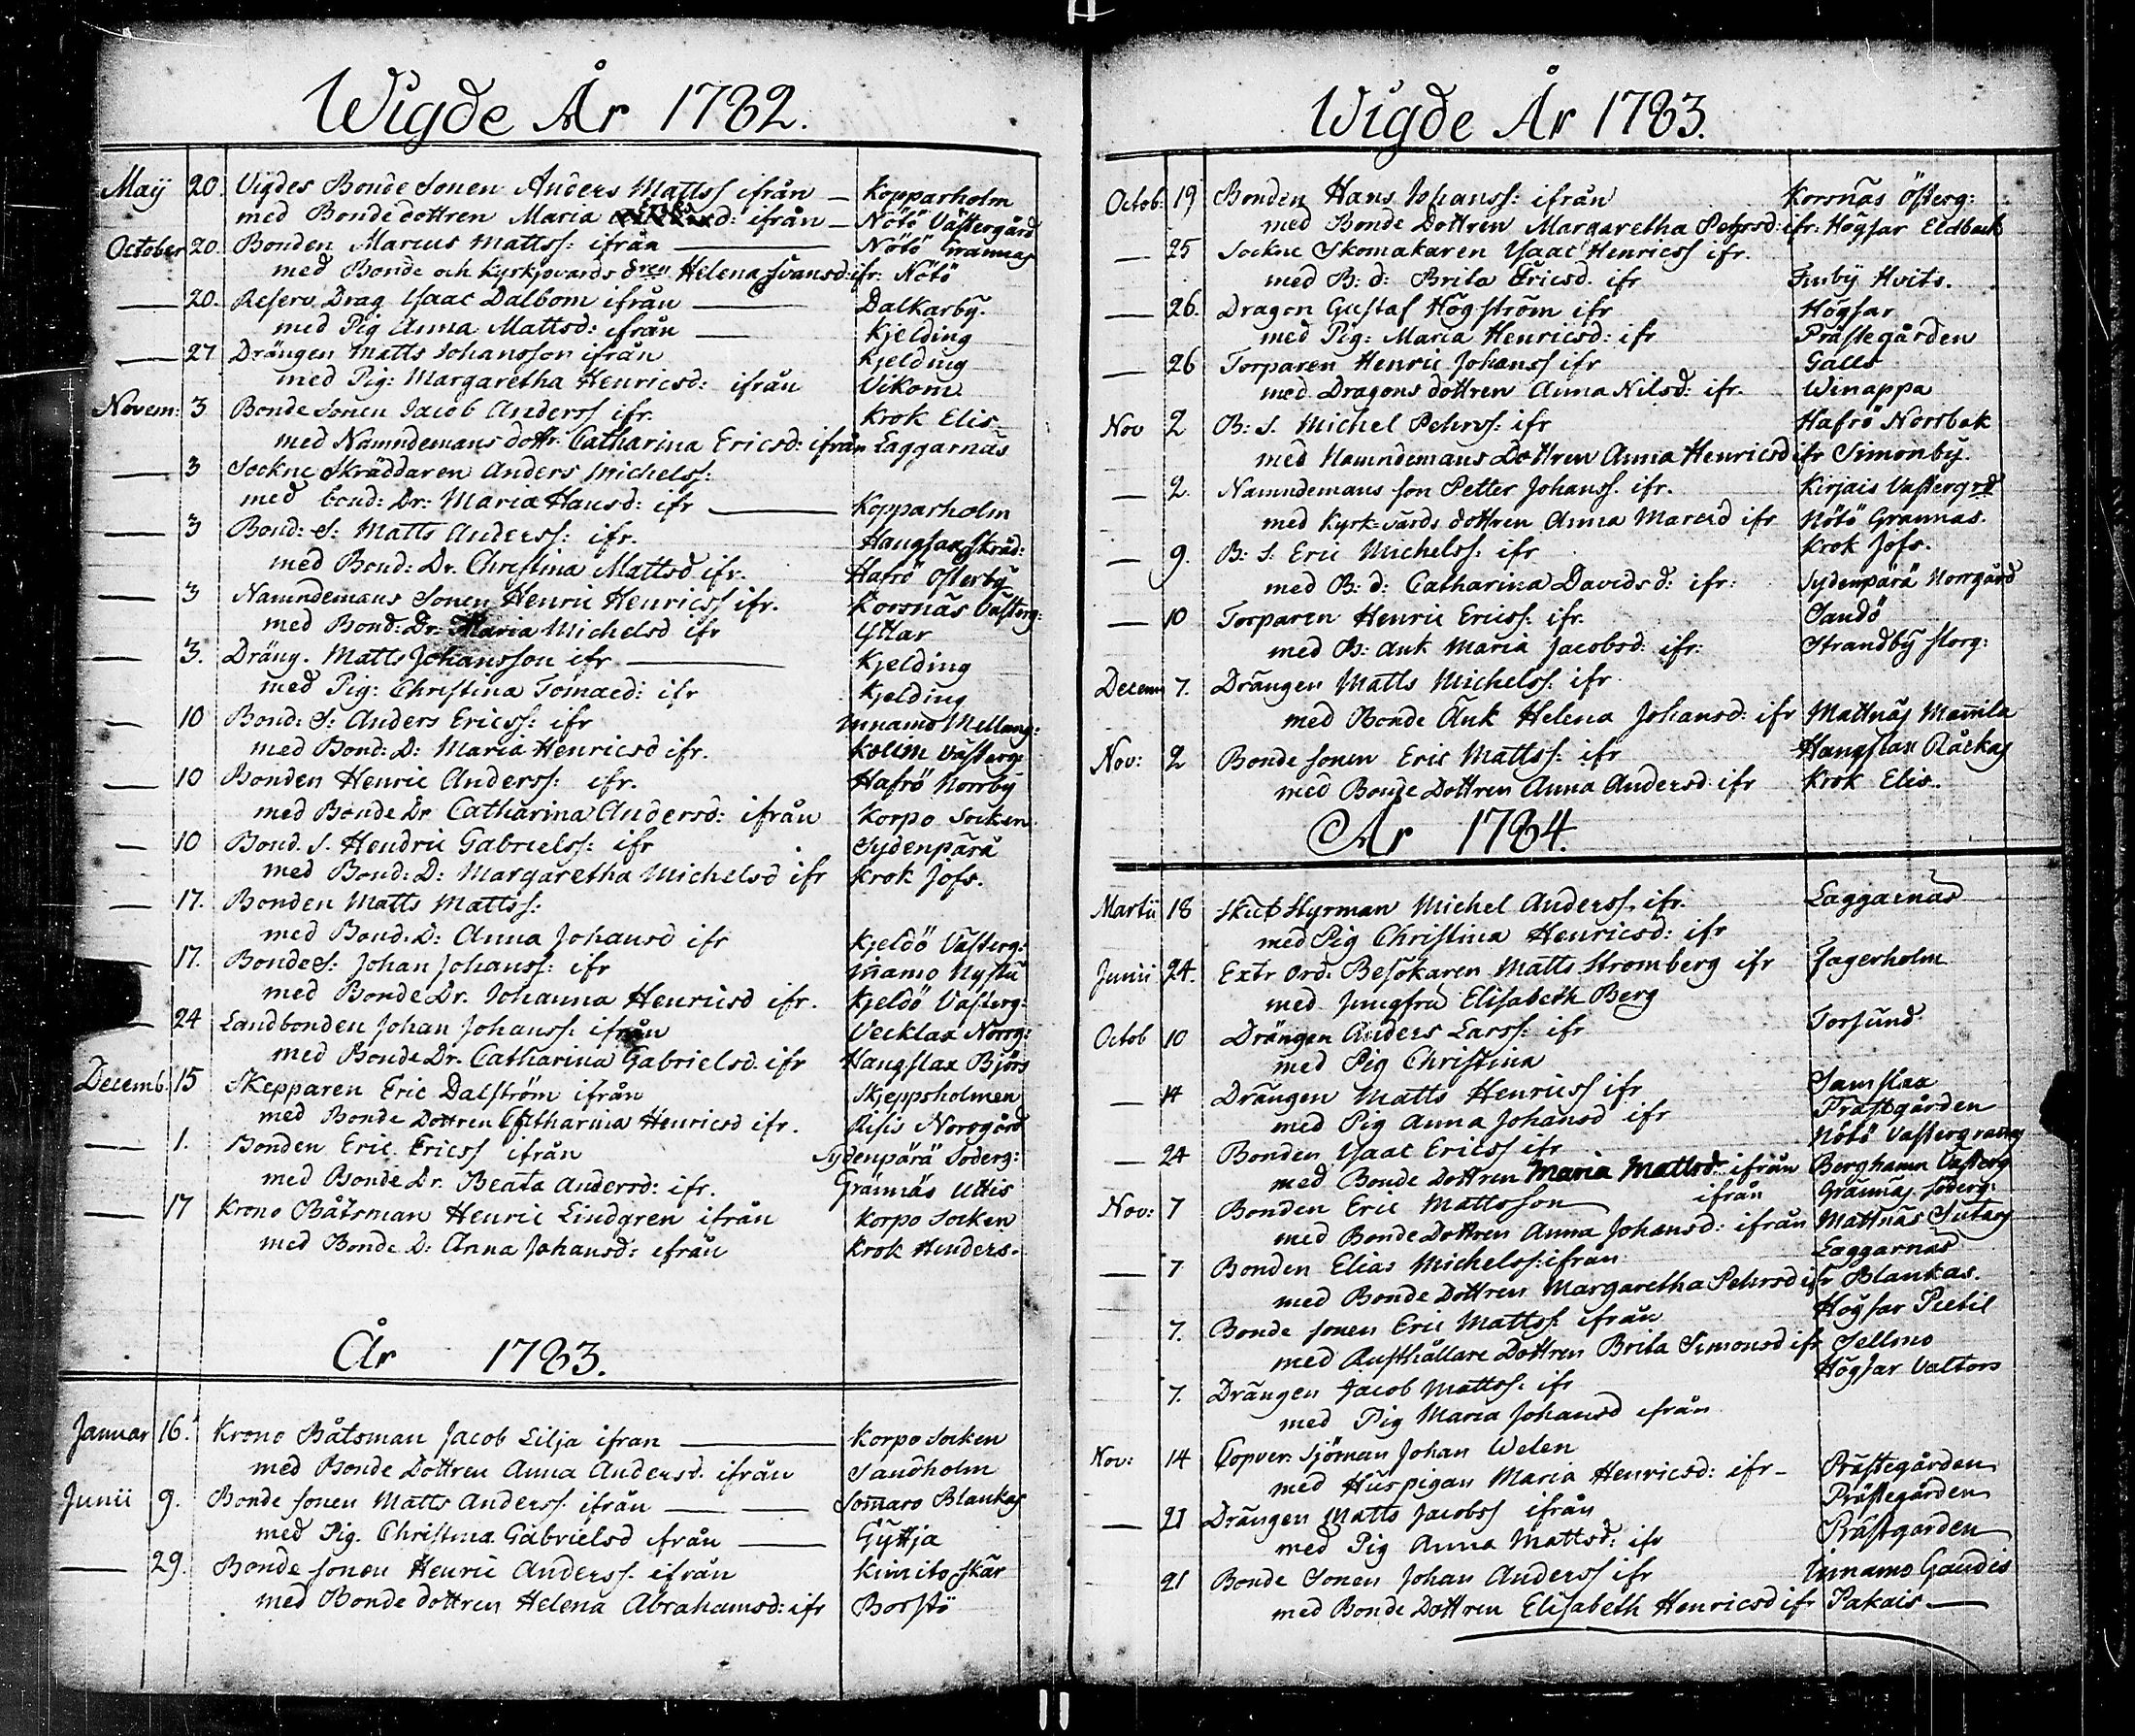 Wigde År 1782.
Maij 20. Vigdes Bonde Sonen Anders Mattss ifrån — Kopparholm
med Bonde dottren Maria d: ifrån — Nötö Västergård
October 20. Bonden Marcus Mattss: ifrån — Nötö Grannas
med Bonde och Kyrkjovärds dren Helena Svansd: ifr: Nötö
— 20. Reserv Drag Ysaac Dalbom ifrån — Dalkarby.
med Pig Anna Mattsd: ifrån — Kjelding
— 27 Drängen Matts Johansson ifrån Kjelding
med Pig: Margaretha Henricsd: ifrån Vikom
Novem: 3 Bonde Sonen Jacob Anderss ifr. Krok Elis
med Namndemans dottr. Catharina Ericsd: ifrån Laggarnäs
— 3 Sockne Skräddaren Anders Michelss:
med bond: Dr: Maria Hansd: ifr — Kopparholm
— 3 Bond: S: Matts Anderss: ifr. Haugsax Skräd:
med Bond: Dr. Christina Mattsd ifr. Hafrö Osterby
— 3 Namndemans Sonen Henric Henricss ifr. Korsnäs Västerg:
med Bond: Dr: Maria Michelsd ifr Yttar
— 3. Dräng. Matts Johansson ifr — Kjelding
med Pig: Christina Tomaed: ifr Kjelding
— 10 Bond: S: Anders Ericss: ifr Innamo Mellang:
med Bond: D: Maria Henricsd ifr. Kolim Västerg:
— 10 Bonden Henric Anderss: ifr. Hafrö Norrby
med Bonde Dr Catharina Andersd: ifrån Korpo Socken
— 10 Bond. S. Hendric Gabrielss: ifr Sydenpärä
med Bond: D: Margaretha Michelsd ifr Krok Jofs.
— 17. Bonden Matts Mattss:
med Bond. D: Anna Johansd ifr Kjeldö Västerg:
17. Bonde S: Johan Johanss: ifr Iñamo Nystu
med Bonde Dr. Johanna Henricsd ifr. Kjeldö Vasterg:
24 Landbonden Johan Johanss: ifrån Vecklax Norrg:
med Bonde Dr. Catharina Gabrielsd. ifr Hangslax Björs
Decemb. 15 Skepparen Eric Dalström ifrån Skjeppsholmen
med Bonde Dottren Catharina Henricsd ifr. Risis Norrgård
— 1. Bonden Eric Ericss ifrån Sydenpärä Söderg:
med Bonde Dr. Beata Andersd: ifr. Grännäs Uttis
— 17 Krono Båtsman Henric Lindgren ifrån Korpo Socken
med Bonde D: Anna Johansd: ifrån Krok Henders.
År 1783.
Januar 16. Krono Båtsman Jacob Lilja ifran — Korpo Socken
med Bonde Dottren Anna Andersd. ifrån Sandholm
Junii 9. Bonde sonen Matts Anderss. ifrån — Som̃aro Blankas
med Pig. Christina Gabrielsd ifrån — Gyttja
— 29. Bonde sonen Henric Anderss. ifrån Kimito skär
med Bonde dottren Helena Abrahamsd: ifr Borstö
Wigde År 1783.
Octob: 19 Bonden Hans Johanss: ifrån Korsñäs Österg:
med Bonde Dottren Margaretha Pehrsd: ifr: Högsar Eldback
— 25 Sockne Skomakaren Ysaac Henricss ifr.
med B: d: Brita Ericsd. ifr Finby Hvits.
— 26. Dragon Gustaf Högström ifr Högsar
med Pig: Maria Henricsd: ifr Prästegården
— 26 Torparen Henric Johanss ifr Galls
med Dragons dottren Anna Nilsd: ifr. Winappa
Nov 2 B: S. Michel Pehrss: ifr Hafrö Norrbak
med Namndemans Dottren Anna Henricsd ifr Simonby
— 2. Namndemans son Petter Johanss. ifr. Kirjais Vasterg rd
med Kyrk-värds dottren Anna Marcsd ifr Nötö Grannas.
— 9. B: S. Eric Michelss: ifr Krok Jofs.
med B: d: Catharina Davidsd: ifr: Sydenpärä Norrgård
— 10 Torparen Henric Ericss: ifr. Sandö
med B: Ank Maria Jacobsd: ifr: Strandby storg:
Decem 7. Drängen Matts Michelss: ifr
med Bonde Änk Helena Johansd: ifr Mattnäs Mañila
Nov: 2 Bonde sonen Eric Mattss: ifr Hangslax Råckas
med Bonde Dottren Anna Andersd ifr Krok Elis.
År 1784.
Martii 18 Skut Styrman Michel Anderss. ifr. Laggarnäs
med Pig Christina Henricsd: ifr
Junii 24. Extr Ord: Besökaren Matts Stromberg ifr Jagerholm
med Jungfru Elisabeth Berg
Octob 10 Drängen Anders Larss: ifr Torsund
med Pig Christina
— 14 Drängen Matts Henricss ifr Samslax
med Pig Anna Johansd ifr Prästgården
— 24 Bonden Ysaac Ericss ifr Nötö Vasterg
med Bonde Dottren Maria Mattsd: ifrån Berghamn Västerg
Nov: 7 Bonden Eric Mattsson ifrån Grännäs söderg:
med Bonde Dottren Anna Johansd: ifrån Mattnäs Sutars
— 7 Bonden Elias Michelss: ifran Laggarnäs
med Bonde Dottren Margaretha Pehrsd ifr Blankas.
7. Bonde sonen Eric Mattss: ifrån Högsar Pietil
med Rusthållare Dottren Brita Simonsd ifr Sellmo
7. Drängen Jacob Mattss: ifr Högsar Valtors
med Pig Maria Johansd ifrån
Nov: 14 Copver: Sjöman Johan Welen
med Huspigan Maria Henricsd: ifr — Prästegården
— 21 Drängen Matts Jacobss ifrån Prästegården
med Pig Anna Mattsd: ifr Prästgarden
21 Bonde Sonen Johan Anderss ifr Innamo Gandis
med Bonde Dottren Elisabeth Henricsd ifr Pakais —